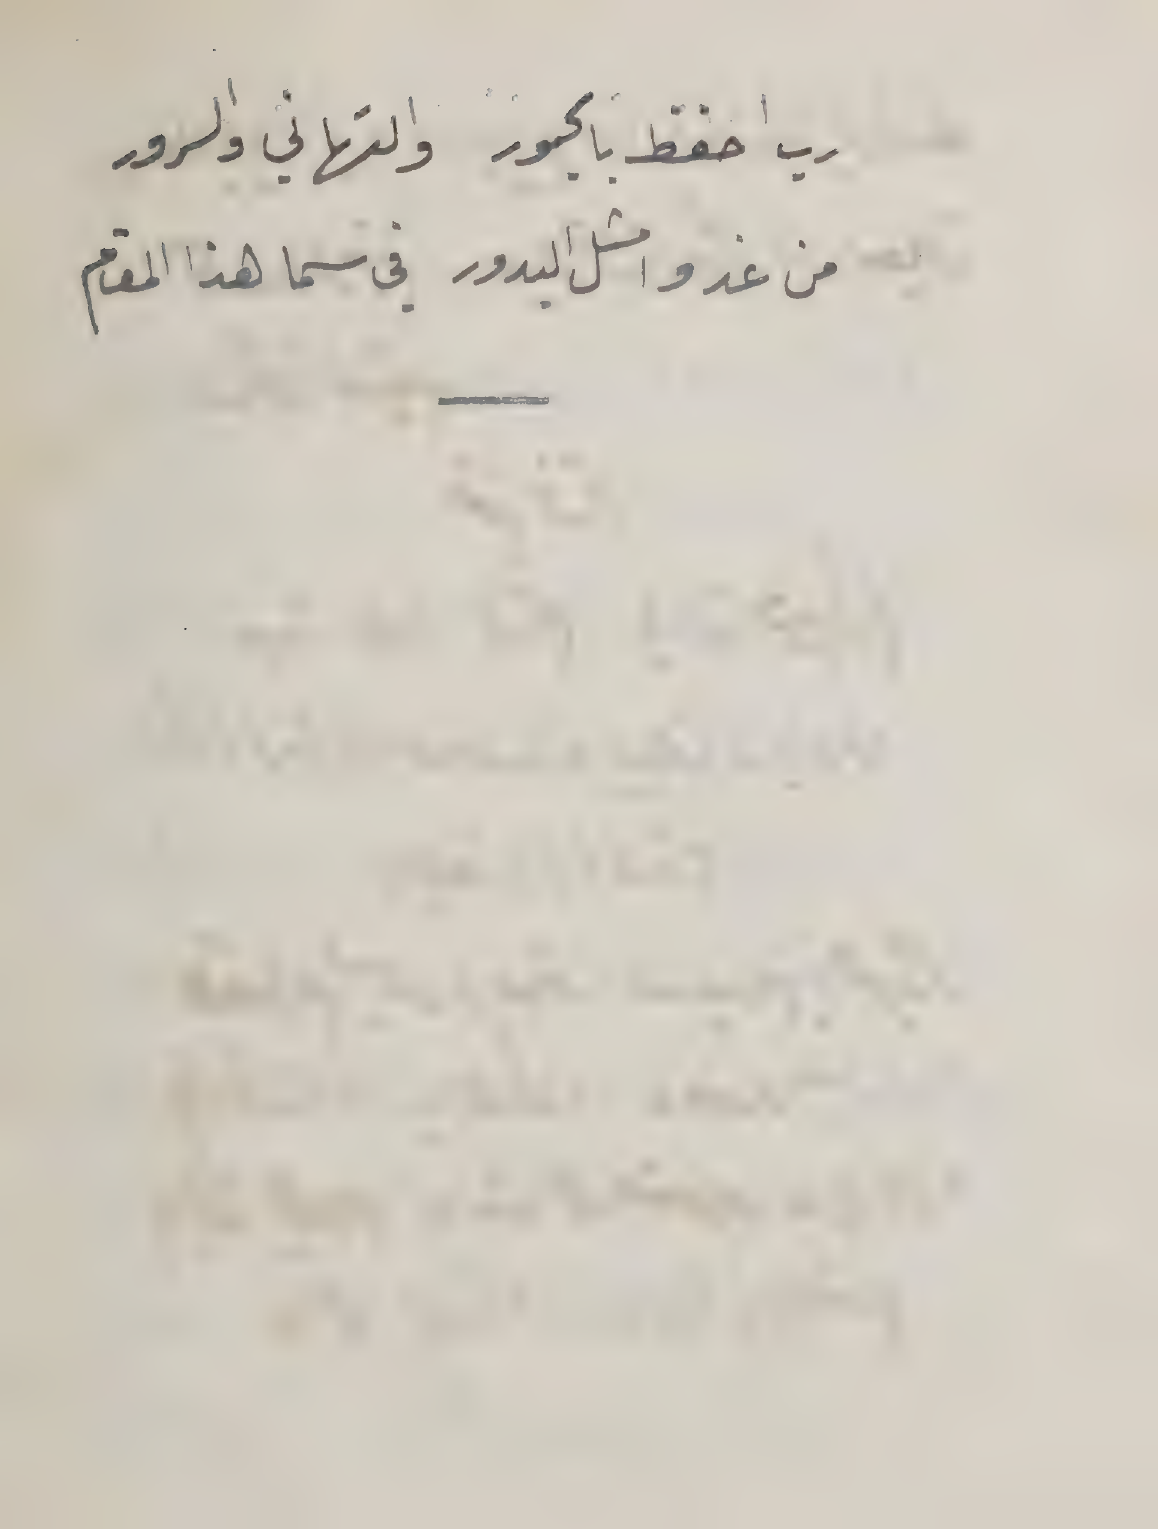 رب احفظ بالحبور والتهاني والسرور
من غدوا مثل البدور في سما هذا المقام